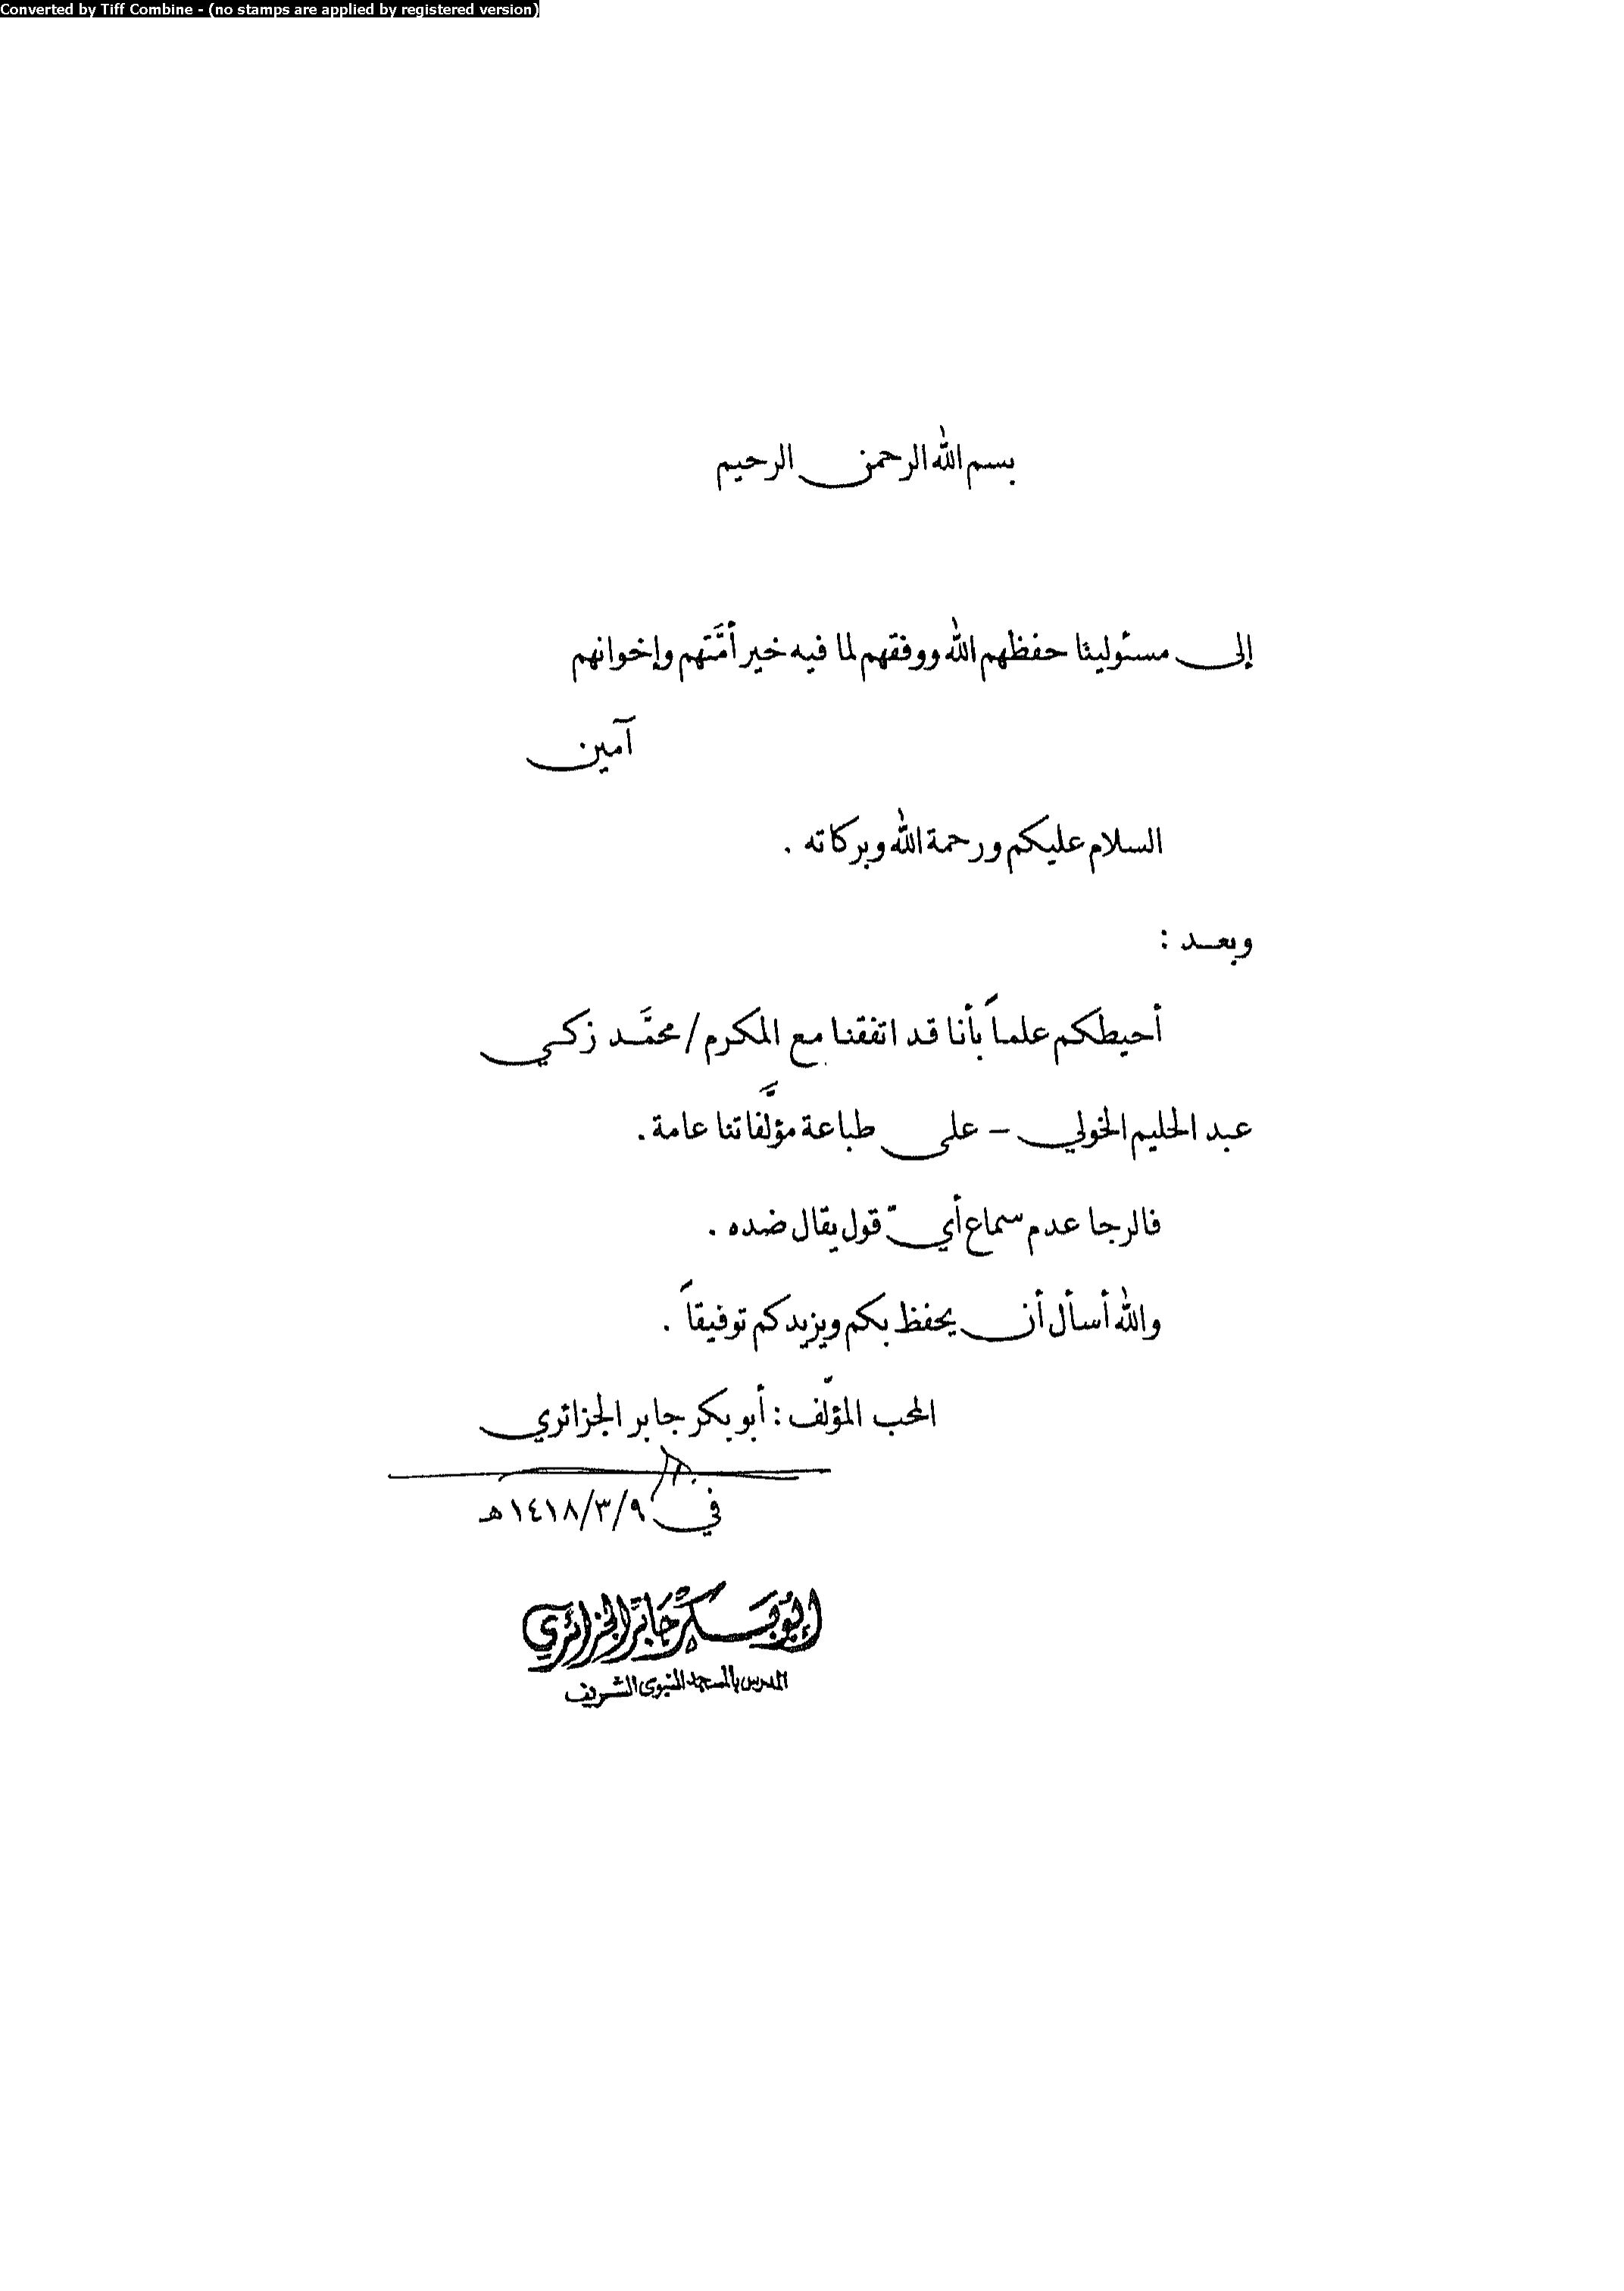 Converted by Tiff Combine - (no stamps are applied by registered version)
بسم الله الرحمن الرحيم
إلى مسئولينا حفظهم الله ووفقهم لما فيه خير أمَّتهم وإخوانهم
آمين
السلام عليكم ورحمة الله وبركاته .
وبعد :
أحيطكم علماً بأنا قد اتفقنا مع المكرم / محمَّد زكي
عبد الحليم الخولي - على طباعة مؤلَّفاتنا عامة .
فالرجا عدم سماع أيّ قول يقال ضده .
والله أسأل أن يحفظ بكم ويزيدكم توفيقاً .
المحب المؤلّف : أبو بكر جابر الجزائري
في ٩/٣/١٤١٨هـ
أبو بكر جابر الجزائري
المدرس بالمسجد النبوي الشريف